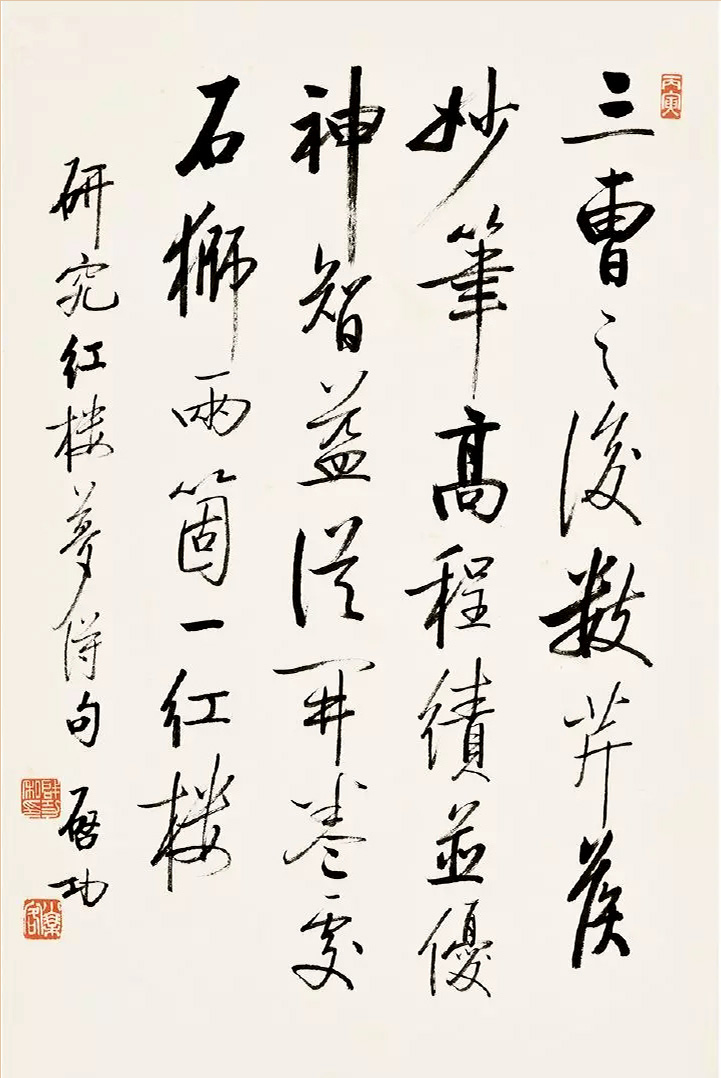 丙寅
三曹之後數芹侯
妙筆高程績並優
神智益從開卷處
石獅兩箇一红楼
研究红楼夢得句
啓功